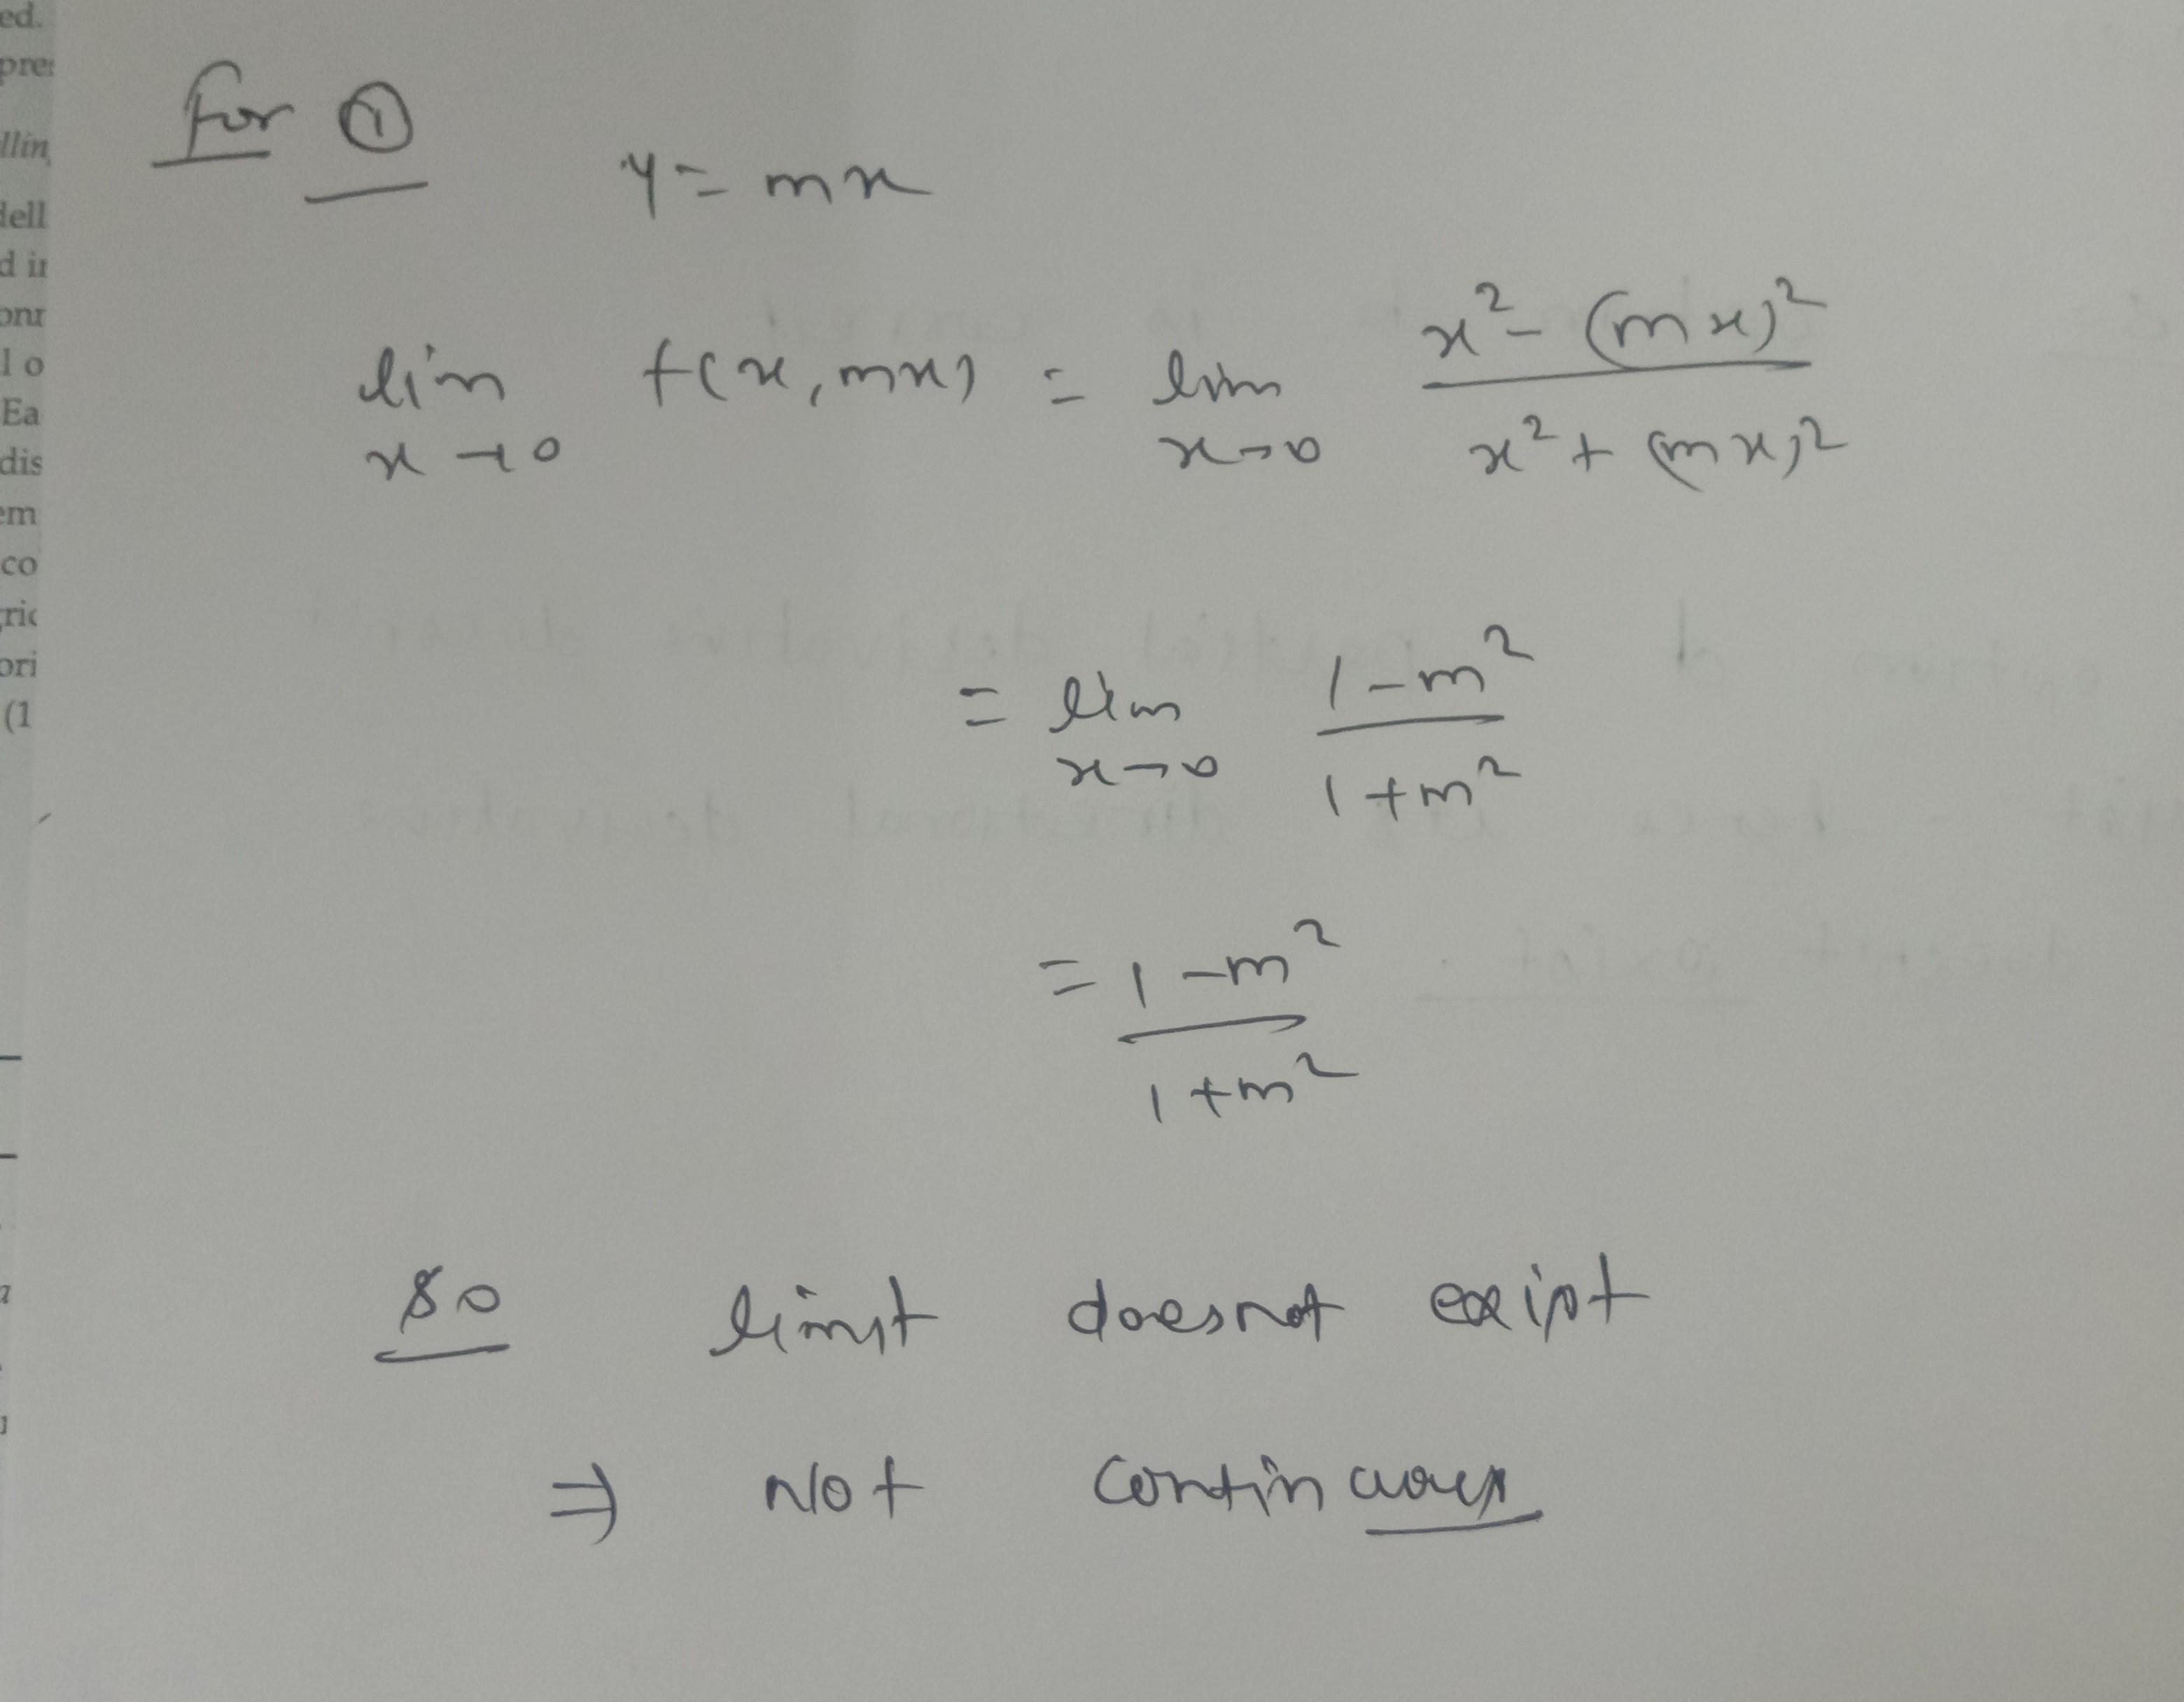 ed.
pres
llin
dell
d in
onr
l o
Ea
dis
em
co
ric
ori
(1
For ①
y = mx
lim x→0 f(x, mx) = lim x→0 x² - (mx)² / x² + (mx)²
= lim x→0 1 - m² / 1 + m²
= 1 - m² / 1 + m²
So limit does not exist
⇒ Not continuous